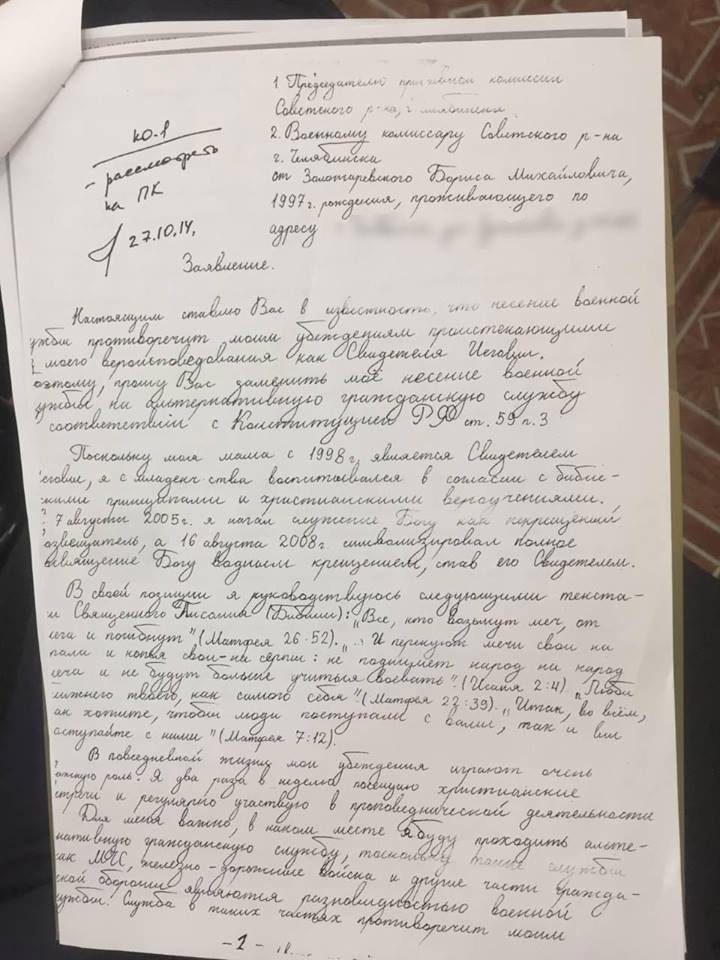 1 Председателю призывной комиссии
Советского р-на, г. Челябинска
2. Военному комиссару Советского р-на
г. Челябинска
от Золотаревского Бориса Михайловича,
1997 г. рождения, проживающего по
адресу
КО-1
- рассмотреть
на ПК
27.10.14,
Заявление.
Настоящим ставлю Вас в известность, что несение военной
ужбы противоречит моим убеждениям проистекающими
моего вероисповедания как Свидетеля Иеговы.
оэтому, прошу Вас заменить моё несение военной
ужбы на альтернативную гражданскую службу
соответствии с Конституцией РФ ст. 59 п. 3
Поскольку моя мама с 1998 г. является Свидетелем
еговы, я с младенчества воспитывался в согласии с библей-
скими принципами и христианскими вероучениями.
7 августа 2005 г. я начал служение Богу как некрещёный
озвещатель, а 16 августа 2008 г. символизировал полное
освящение Богу водным крещением, став его Свидетелем.
В своей позиции я руководствуюсь следующими текста-
и Священного Писания (Библии): "Все, кто возьмут меч, от
еча и погибнут" (Матфея 26:52). "... И перекуют мечи свои на
рала и копья свои - на серпы: не поднимет народ на народ
еча и не будут больше учиться воевать". (Исаия 2:4). "Люби
лижнего твоего, как самого себя" (Матфея 22:39). "Итак, во всём,
ак хотите, чтобы люди поступали с вами, так и вы
оступайте с ними" (Матфея 7:12).
В повседневной жизни мои убеждения играют очень
ажную роль. Я два раза в неделю посещаю христианские
стречи и регулярно участвую в проповеднической деятельности
Для меня важно, в каком месте я буду проходить альте-
нативную гражданскую службу, поскольку такие службы
как МЧС, железно-дорожные войска и другие части гражда-
ской обороны являются разновидностью военной
службы. Служба в таких частях противоречит моим
- 1 -